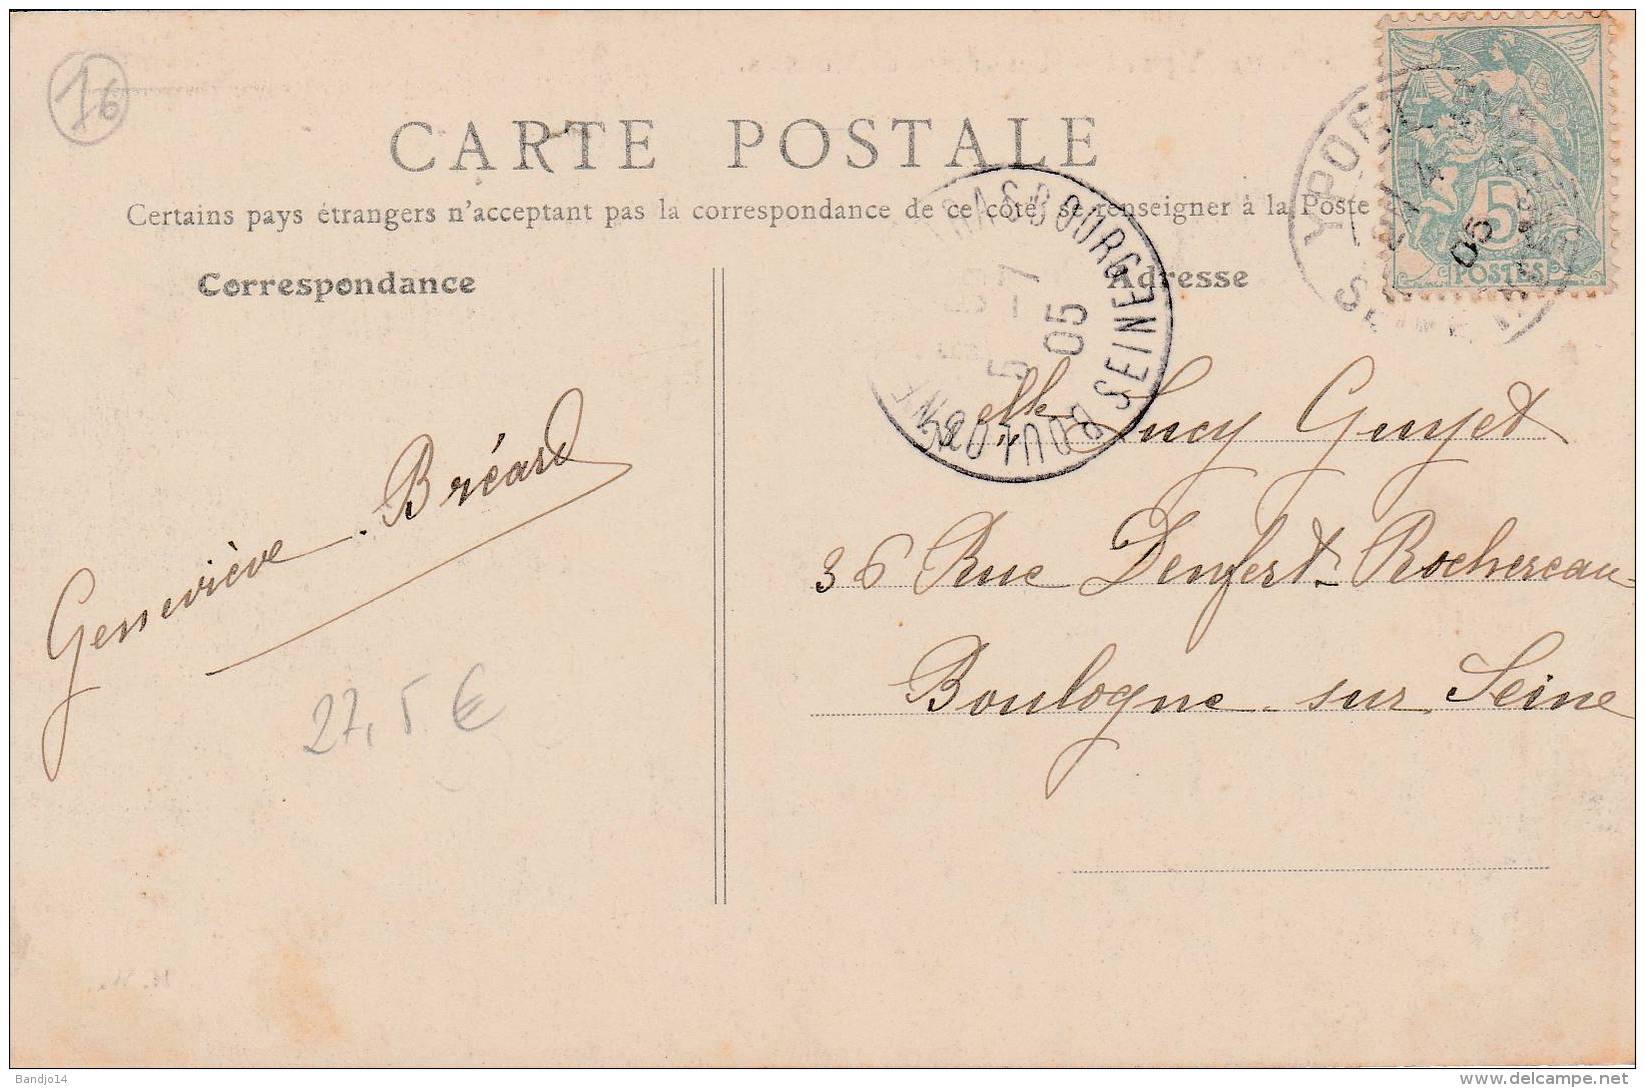 16
CARTE POSTALE
Certains pays étrangers n'acceptant pas la correspondance de ce côté, se renseigner à la Poste
Correspondance
Adresse
YPORT
4
05
POSTES
5
STRASBOURG
BOULOGNE S. SEINE
5 - 7
05
Melle Lucy Guyet
36 Rue Denfert-Rochereau
Boulogne sur Seine
Geneviève Bréard
27,5 €
Bandjo14
www.delcampe.net